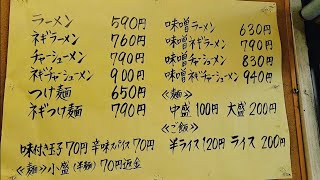 ラーメン 590円
ネギラーメン 760円
チャーシューメン 790円
ネギチャーシューメン 900円
つけ麺 650円
ネギつけ麺 790円
味付き玉子70円 辛味スパイス70円
≪麺≫小盛(半麺)70円返金
味噌ラーメン 630円
味噌ネギラーメン 790円
味噌チャーシューメン 830円
味噌ネギチャーシューメン 940円
≪麺≫
中盛100円 大盛200円
≪ご飯≫
半ライス120円 ライス200円